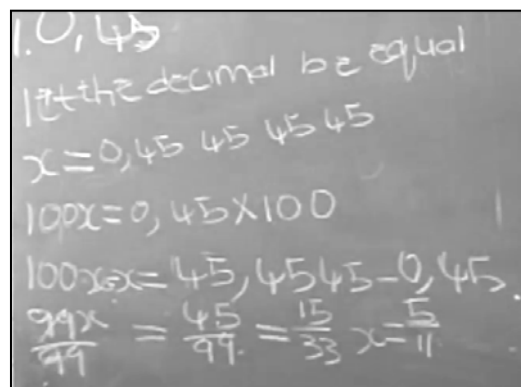 1. 0,45
let the decimal be equal
x=0,45 45 45 45
100x=0,45X100
100x-x=45,4545-0,45
99x/99 = 45/99 = 15/33 x=5/11